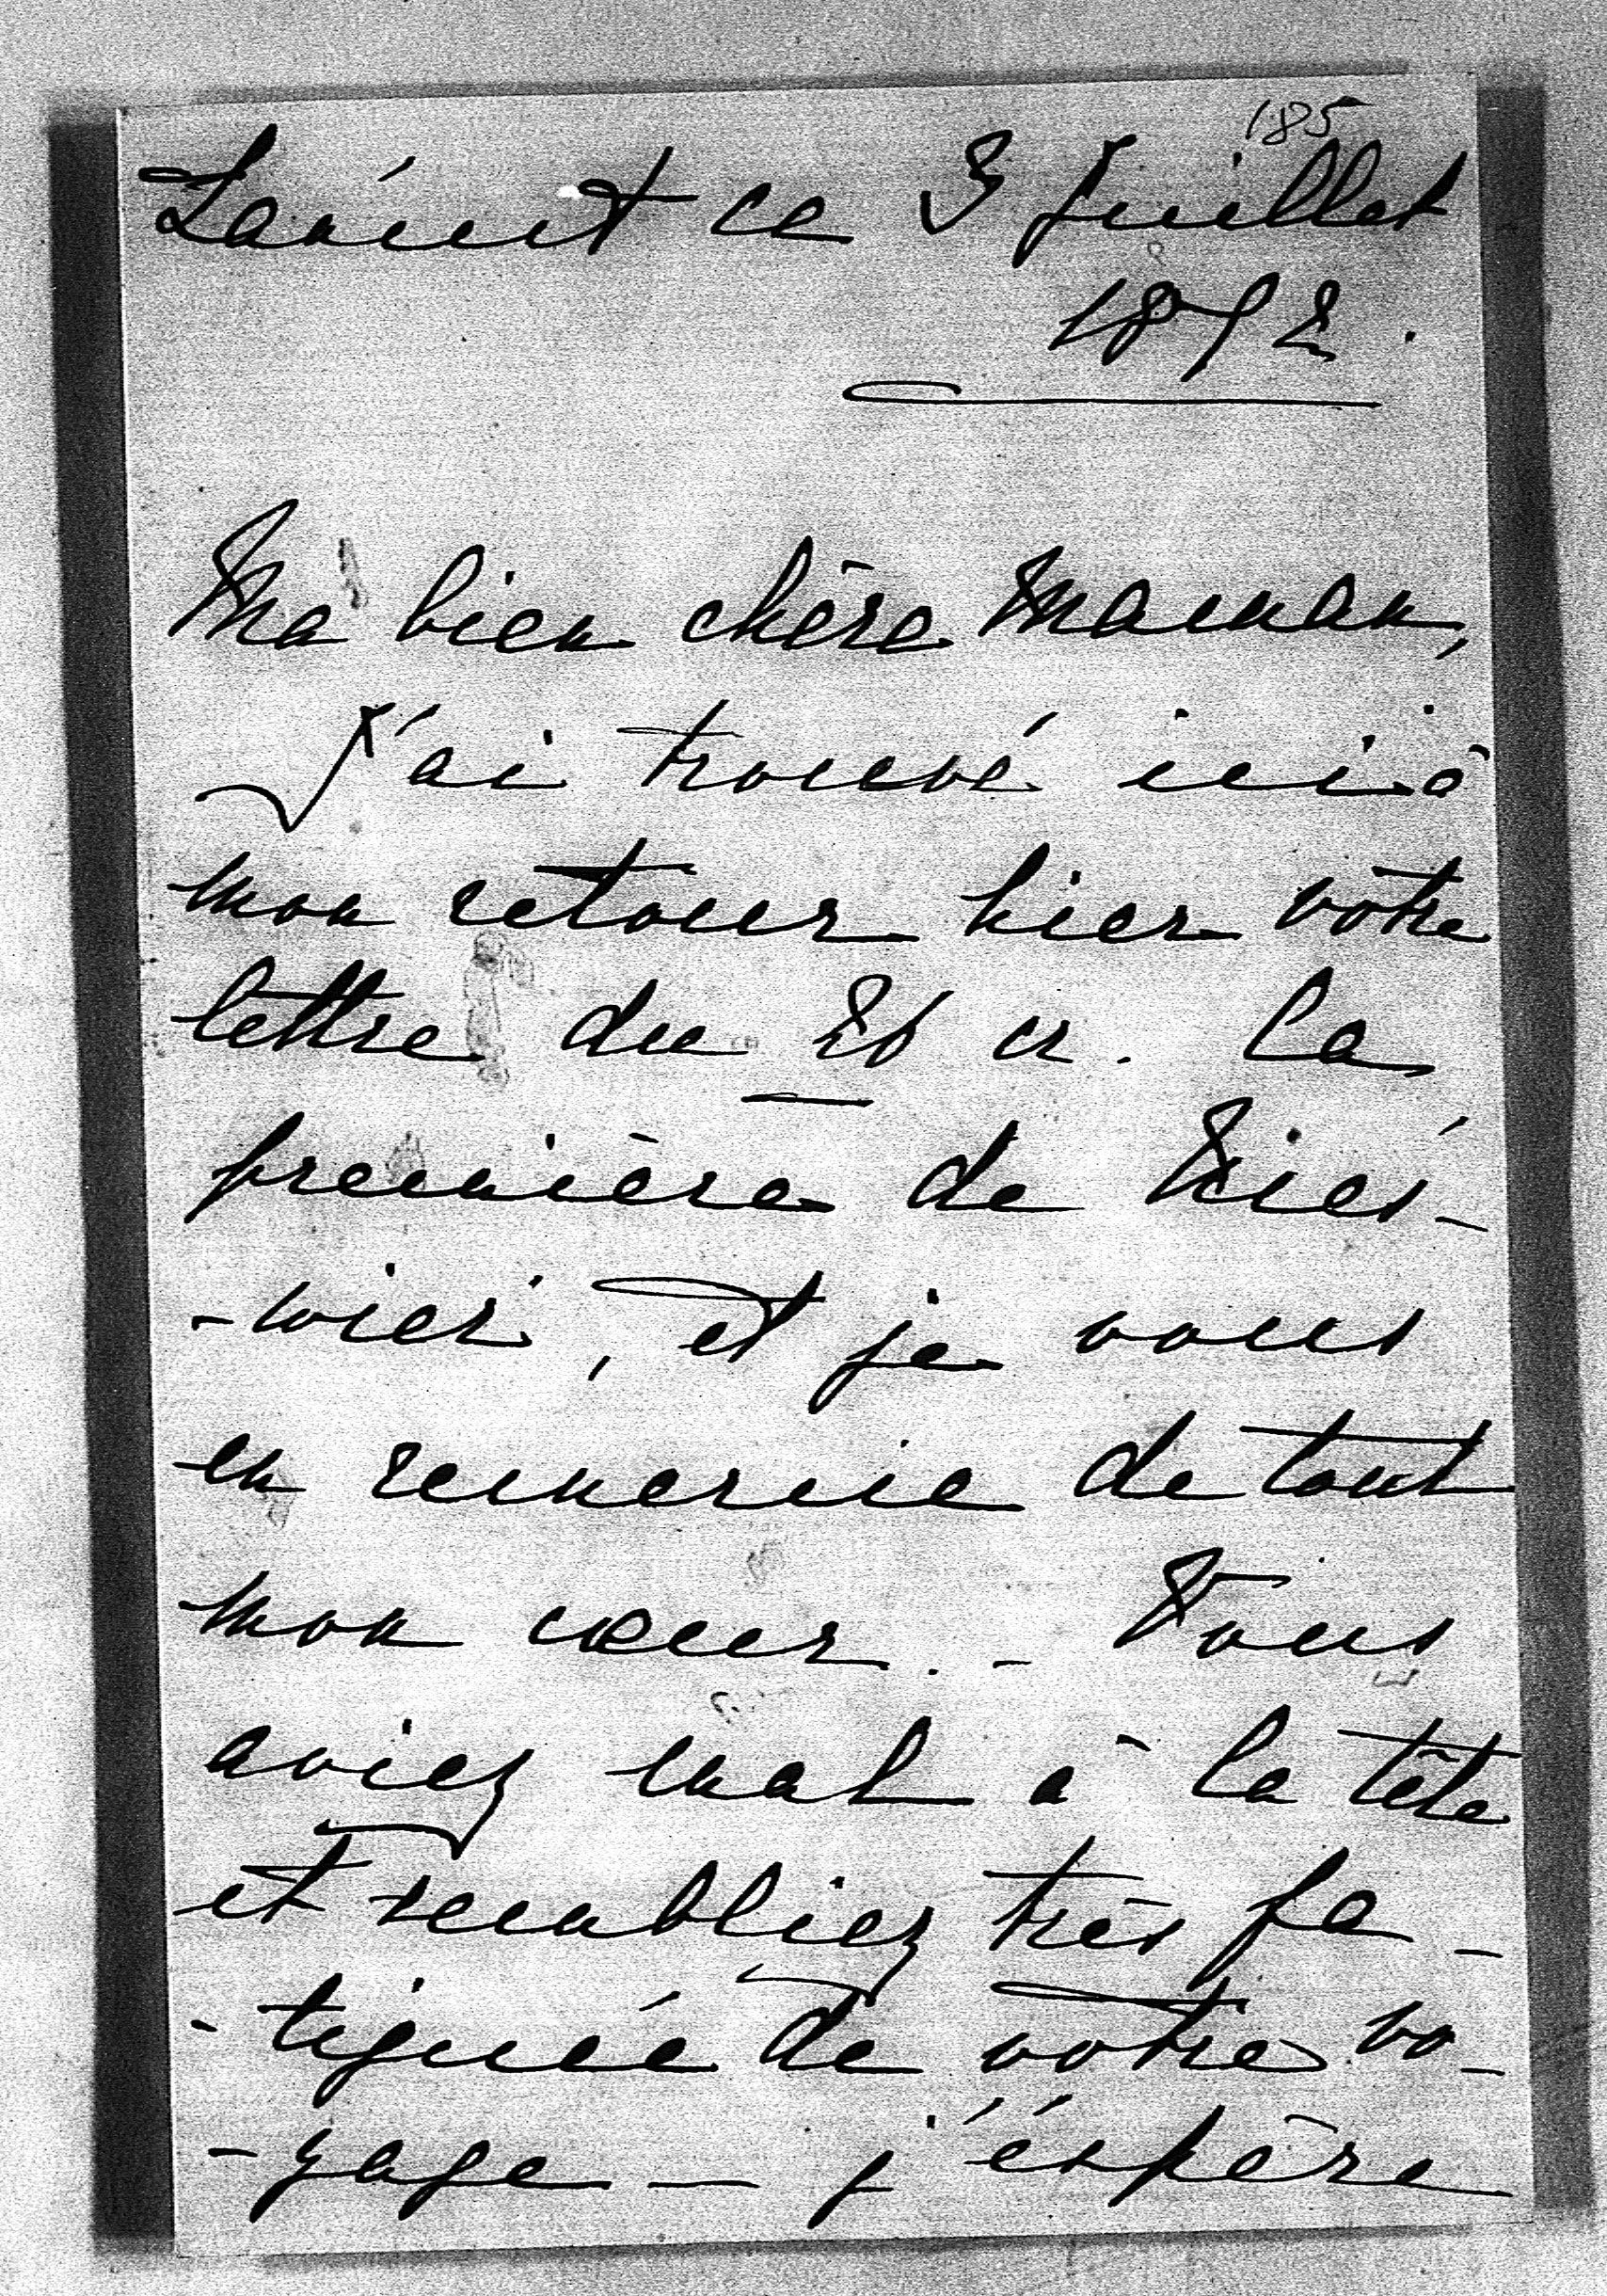 185
Łańcut ce 3 Juillet
1892.
Ma bien chère Maman,
J'ai trouvé ici à
mon retour hier votre
lettre du 26 cr. la
première de Nieś-
-wież, et je vous
en remercie de tout
mon cœur. - Vous
aviez mal à la tête
et sembliez très fa-
-tiguée de votre vo-
-yage — j'éspère